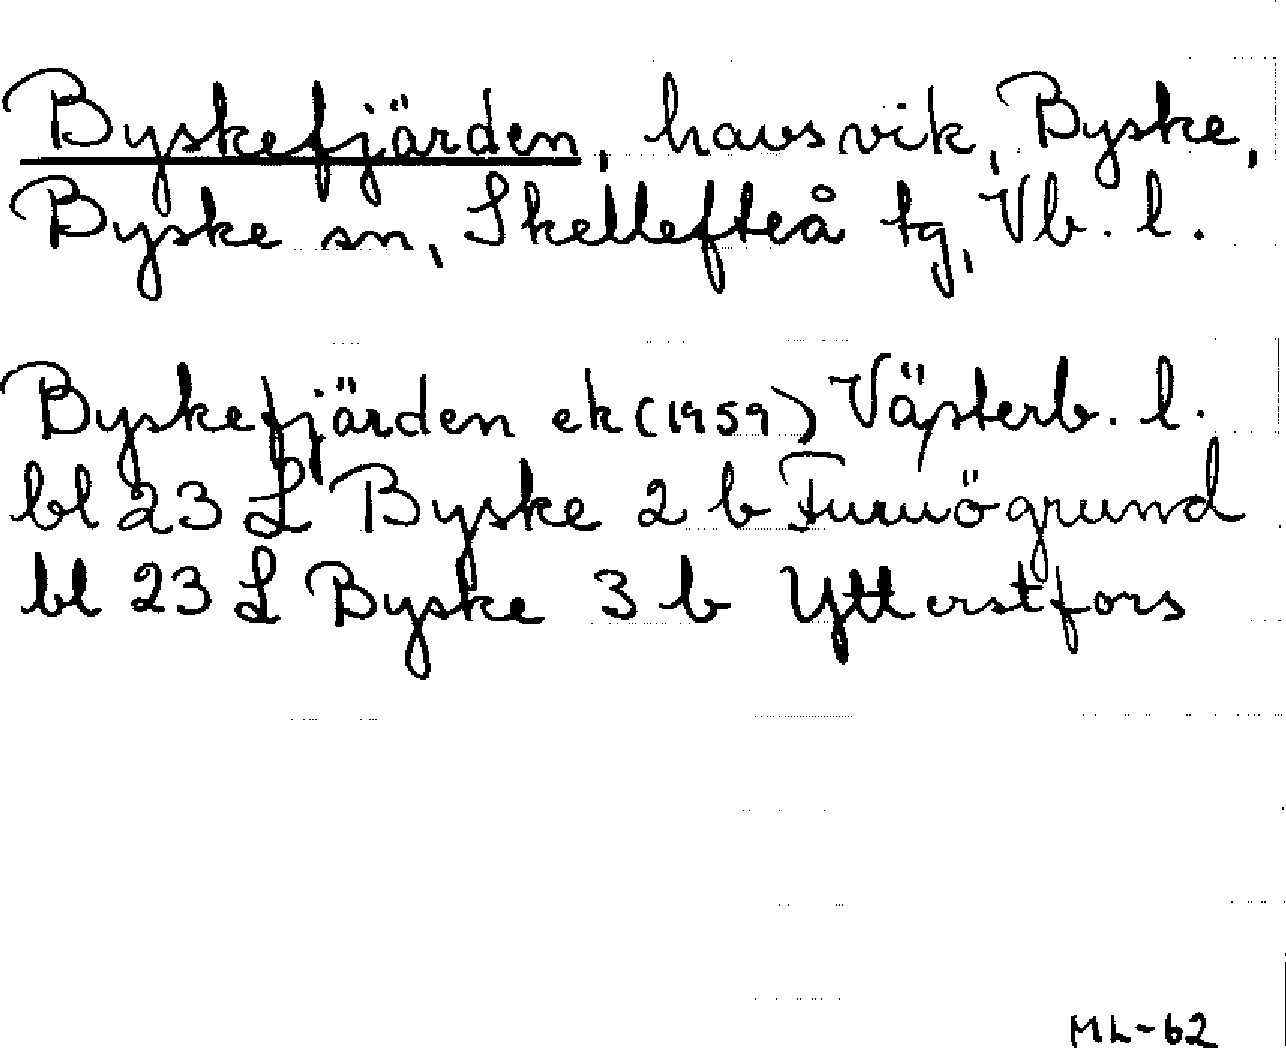 Byskefjärden, havsvik, Byske,
Byske sn, Skellefteå tg, Vb. l.
Byskefjärden ek (1959) Västerb. l.
bl 23 L Byske 2 b Furuögrund
bl 23 L Byske 3 b Ytterstfors
ML-62